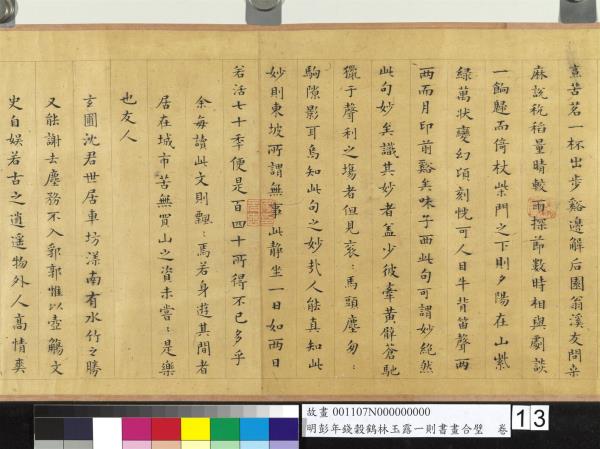 烹苦茗一杯出步谿邊解后園翁溪友問桑
麻說秔稻量晴較雨探節數時相與劇談
一餉歸而倚杖柴門之下則夕陽在山紫
綠萬狀變幻頃刻恍可人目牛背笛聲兩
兩而月印前谿矣味子西此句可謂妙絕然
此句妙矣識其妙者盖少彼牽黃臂蒼馳
獵于聲利之場者但見衮:馬頭塵匆:
駒隙影耳烏知此句之妙㢤人能真知此
妙則東坡所謂無事此静坐一日如兩日
若活七十年便是百四十所得不已多乎
余每讀此文則飄:焉若身遊其間者
居在城市苦無買山之資未嘗:是樂
也友人
玄圃沈君世居車坊漾南有水竹之勝
又能謝去塵務不入郛郭惟以壺觴文
史自娛若古之逍遥物外人高情爽
故畫 001107N000000000
明彭年錢穀鶴林玉露一則書畫合璧 卷
13